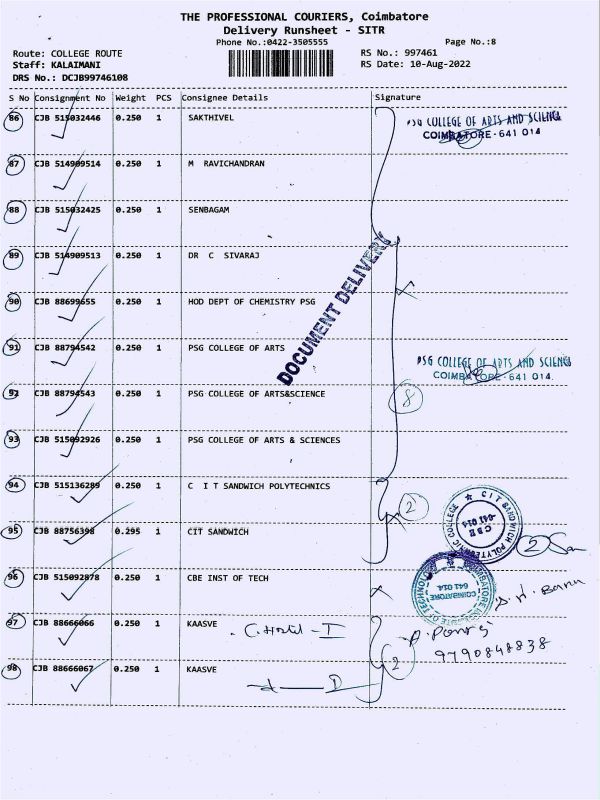 THE PROFESSIONAL COURIERS, Coimbatore
Delivery Runsheet - SITR
Phone No.:0422-3505555
Page No.:8
Route: COLLEGE ROUTE
RS No.: 997461
Staff: KALAIMANI
RS Date: 10-Aug-2022
DRS No.: DCJB99746108
S No Consignment No Weight PCS Consignee Details Signature
86 CJB 515032446 0.250 1 SAKTHIVEL
PSG COLLEGE OF ARTS AND SCIENCE
COIMBATORE - 641 014
87 CJB 514909514 0.250 1 M RAVICHANDRAN
88 CJB 515032425 0.250 1 SENBAGAM
89 CJB 514909513 0.250 1 DR C SIVARAJ
DOCUMENT DELIVERY
90 CJB 88699655 0.250 1 HOD DEPT OF CHEMISTRY PSG
91 CJB 88794542 0.250 1 PSG COLLEGE OF ARTS
PSG COLLEGE OF ARTS AND SCIENCE
COIMBATORE - 641 014.
92 CJB 88794543 0.250 1 PSG COLLEGE OF ARTS&SCIENCE
8
93 CJB 515092926 0.250 1 PSG COLLEGE OF ARTS & SCIENCES
94 CJB 515136289 0.250 1 C I T SANDWICH POLYTECHNICS
2
CIT SANDWICH POLYTECHNIC COLLEGE
CBE
-641 014
95 CJB 88756398 0.295 1 CIT SANDWICH
2
96 CJB 515092878 0.250 1 CBE INST OF TECH
COIMBATORE
641 014
97 CJB 88666066 0.250 1 KAASVE
C. Hostel - I
9790848838
98 CJB 88666067 0.250 1 KAASVE
2